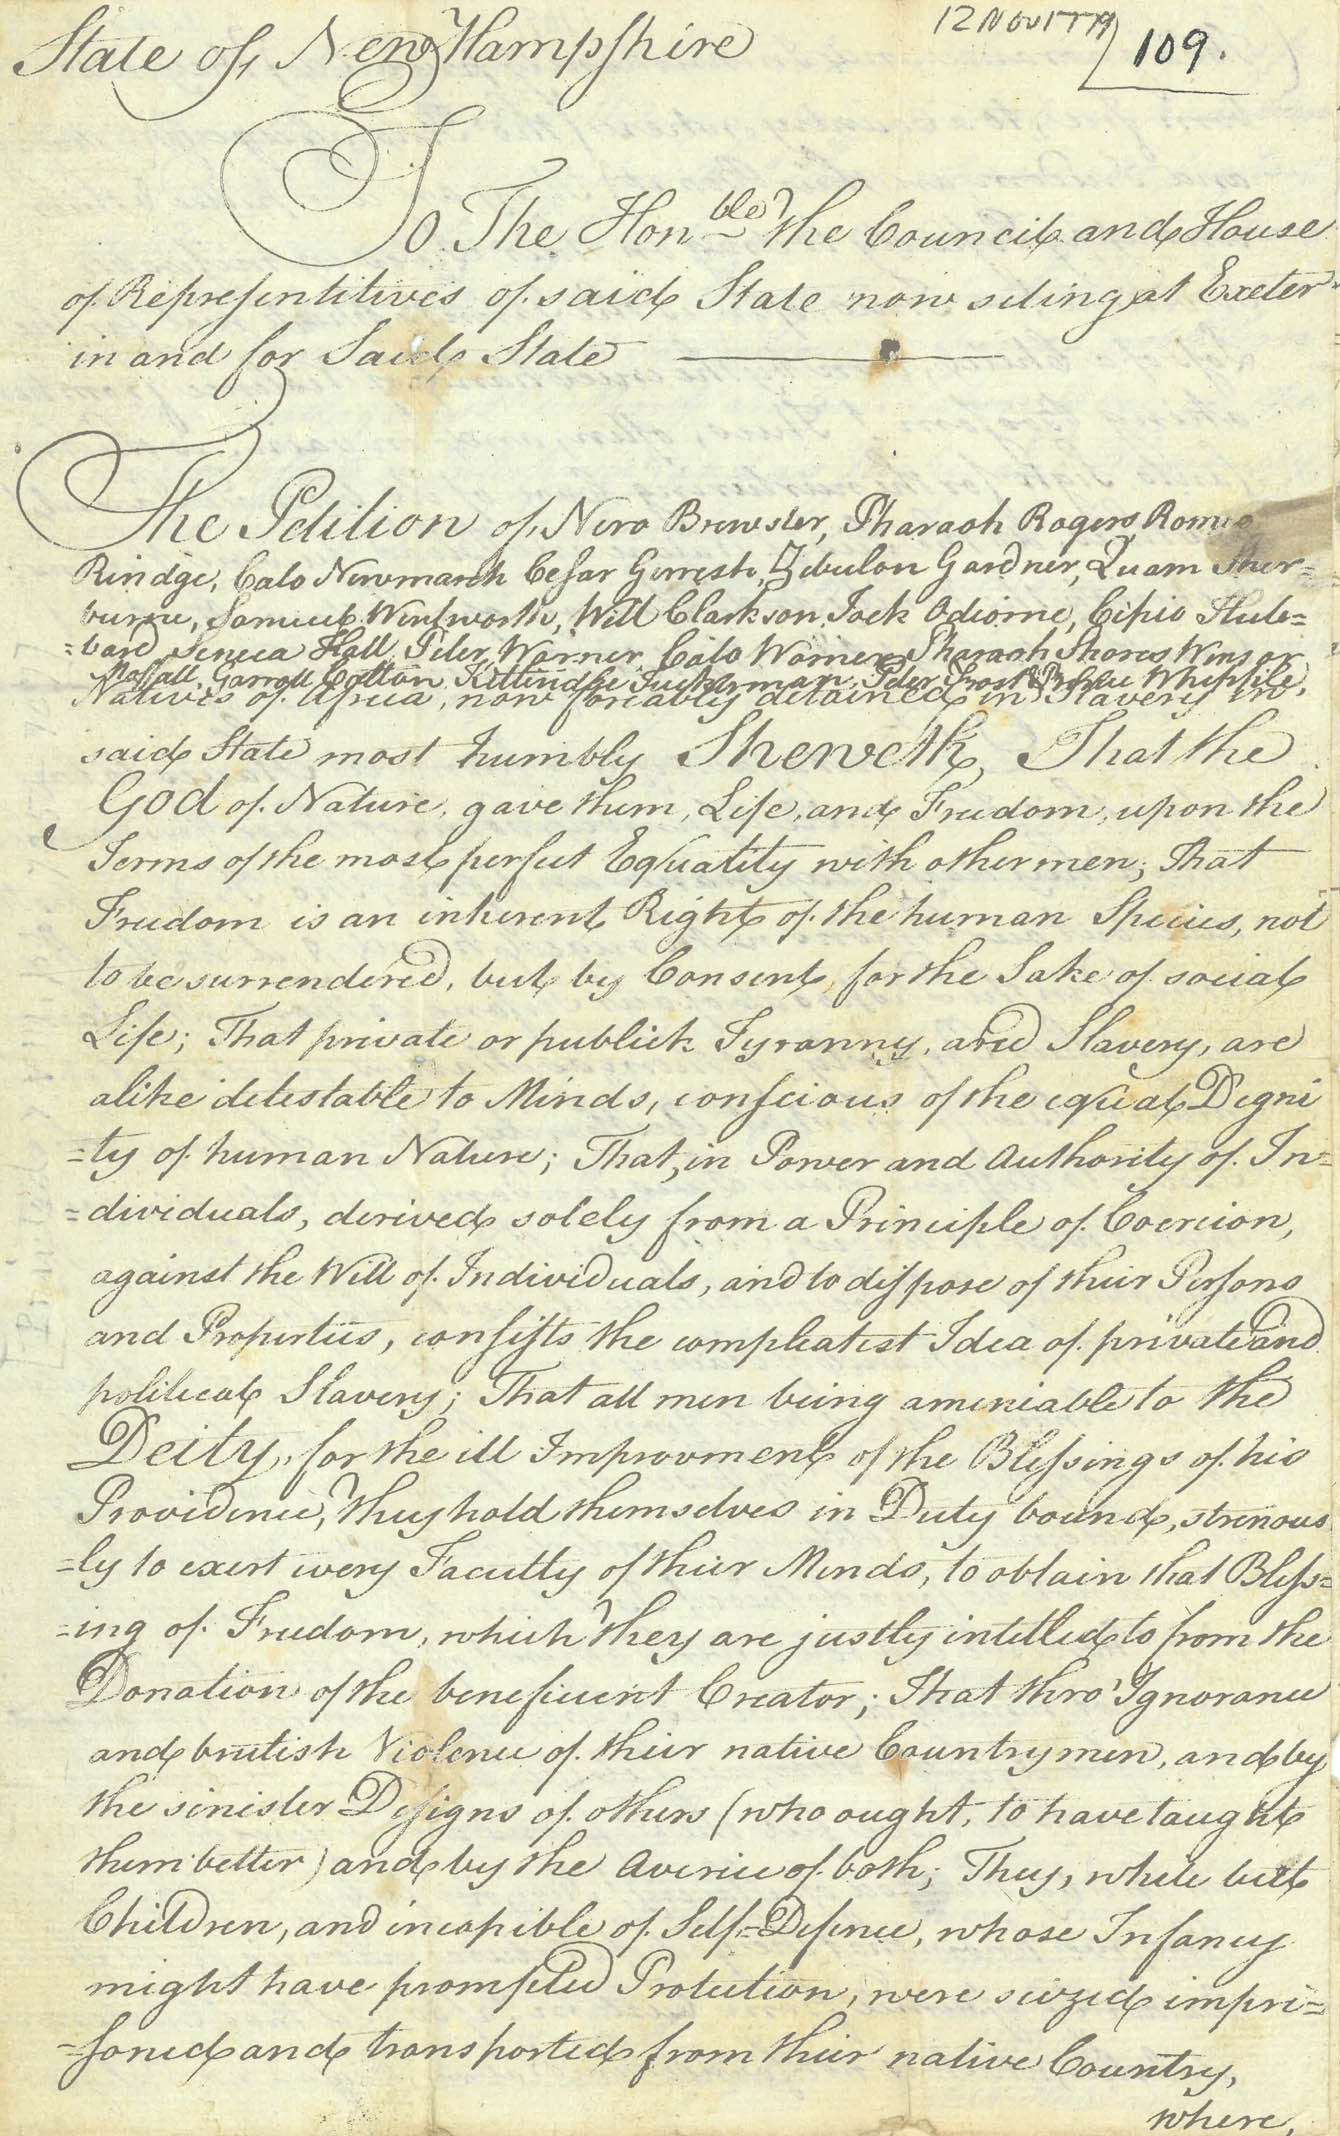 12 Nov 1779
109.
State of New Hampshire
To The Honble the Council and House
of Represintitives of said State now siting at Exeter
in and for Said State
The Petition of Nero Brewster, Pharaoh Rogers, Romeo
Rindge, Cato Newmarch Cesar Gerrish, Zebulon Gardner, Quam Sher=
burne, Samuel Wentworth, Will Clarkson, Jack Odiorne, Cipio Hub=
=bard Seneca Hall, Peter Warner, Cato Warner, Pharaoh Shores Winsor
Moffatt, Garrott Cotton, Kittindge Tuckerman, Peter Frost & Prince Whipple,
Natives of Africa, now forcably detained in Slavery in
said State most humbly Sheweth, That the
God of Nature, gave them, Life, and Freedom, upon the
Terms of the most perfect Equality with other men; That
Freedom is an inherent Right of the human Species, not
to be surrendered, but by Consent, for the Sake of social
Life; That private or publick Tyranny, and Slavery, are
alike detestable to Minds, conscious of the equal Digni
=ty of human Nature; That, in Power and Authority of In=
=dividuals, derived solely from a Principle of Coercion,
against the Will of Individuals, and to dispose of their Persons
and Properties, consists the compleatest Idea of private and
political Slavery; That all men being ameniable to the
Deity, for the ill Improvment of the Blessings of his
Providence, They hold themselves in Duty bound, strenous
=ly to exert every Faculty of their Minds, to obtain that Bless=
=ing of Freedom, which they are justly intitled to from the
Donation of the beneficent Creator; That thro' Ignorance
and brutish Violence of their native Countrymen, and by
the sinister Designs of others (who ought, to have taught
them better) and by the Averice of both; They, while but
Children, and incapible of Self=Defence, whose Infancy
might have prompted Protection, were siezed impri=
=soned and transported from their native Country,
where,